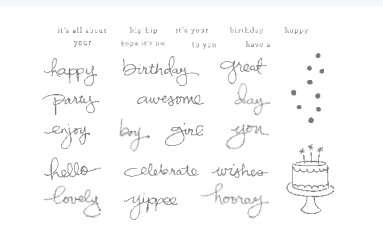 it's all about hip hip it's your birthday happy
your hope it's on to you have a
happy birthday great
party awesome day
enjoy boy girl you
hello celebrate wishes
lovely yippee hooray